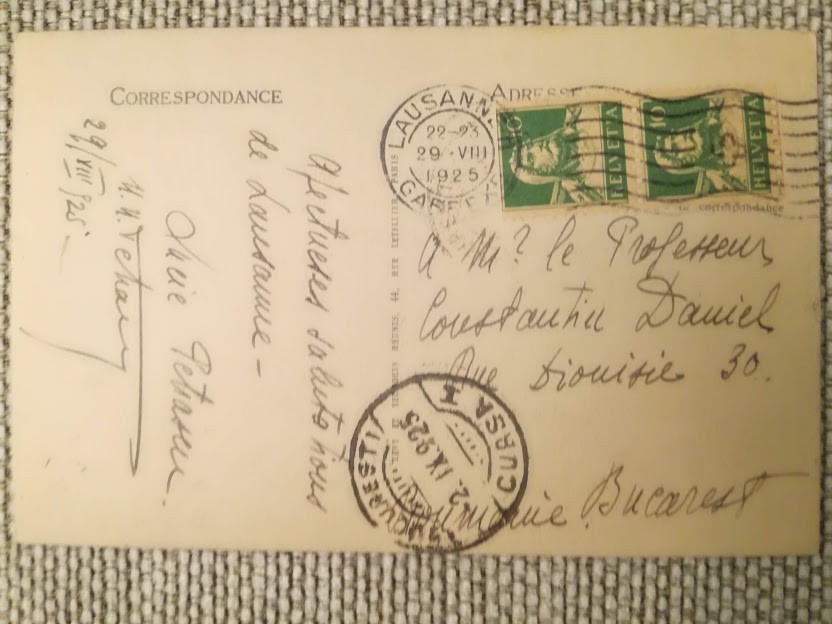 CORRESPONDANCE
ADRESSE
LAUSANNE
22-23
29·VIII
1925
GARE
10
HELVETIA
10
HELVETIA
la correspondance
Afectueses salutations
de Lausanne –
29/VIII/925.–
A Mr le Professeur
Constantin Daniel
Rue Dionisie 30.
Bucarest
Roumanie
BUCUREȘTI
2. IX. 925
CURSA
PARIS